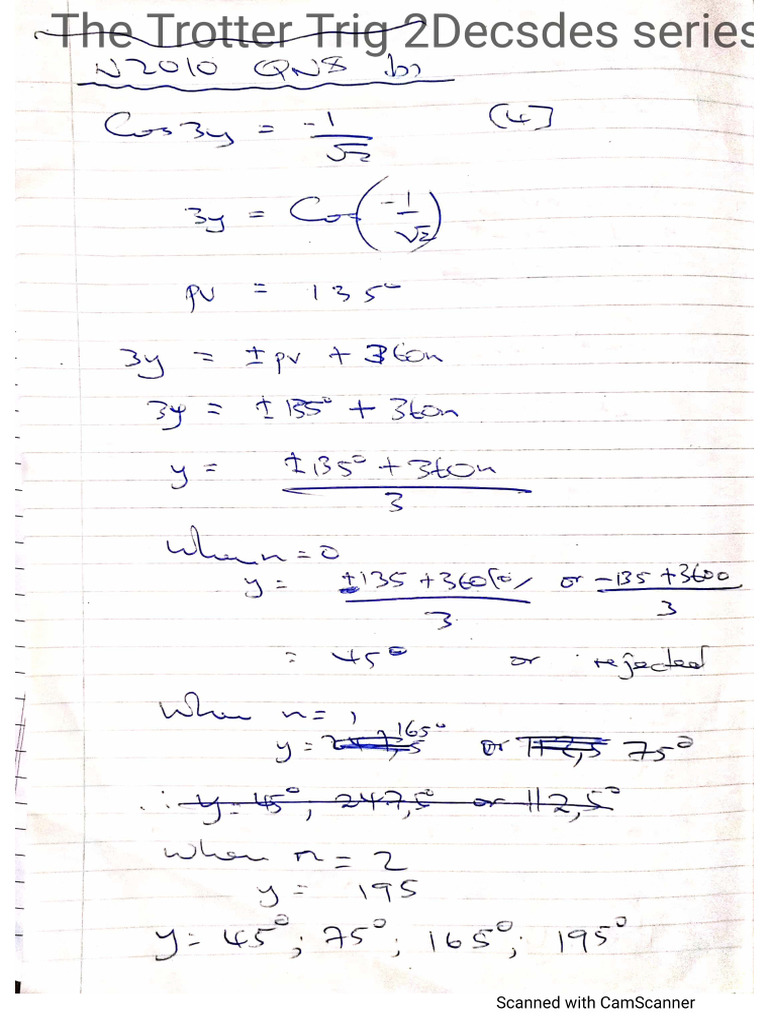 The Trotter Trig 2Decsdes series
N2010 QN8 b)
Cos3y = -1/√2 [4]
3y = Cos(-1/√2)
pv = 135°
3y = ±pv + 360n
3y = ±135° + 360n
y = ±135° + 360n / 3
When n=0
y = +135 + 360(0) / 3 or -135 + 3600 / 3
= 45° or rejected
When n= 1
y = 165° or 75°
∴ y= 45°, 247,5° or 112,5°
When n = 2
y = 195
y= 45°; 75°; 165°; 195°
Scanned with CamScanner